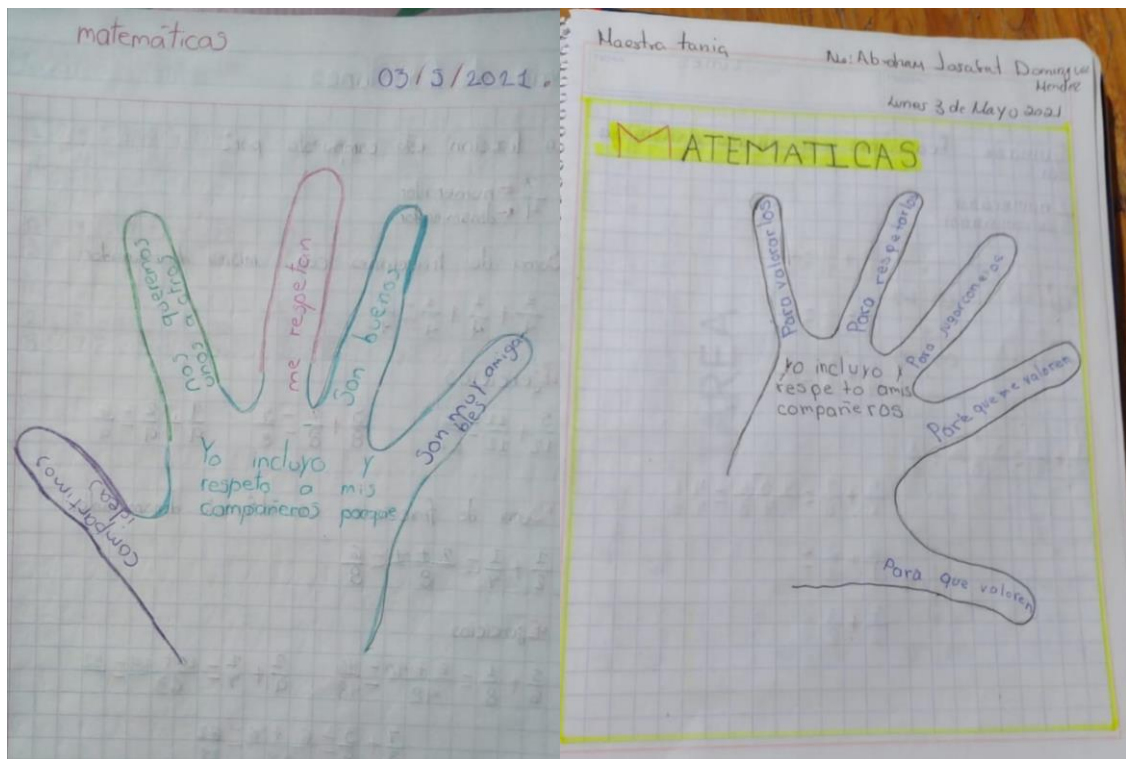 matemáticas
03/5/2021.
compartimos
ideas
nos queremos
unos a otros
me respetan
son buenos
son muy amiga
bles
Yo incluyo y
respeto a mis
compañeros porque
Maestra tania
No: Abraham Josafat Dominguez
Mendez
Lunes 3 de Mayo 2021
MATEMATICAS
Para valorarlos
Para respetarlos
Para jugar con ellos
Para que me valoren
Para que valoren
yo incluyo y
respeto amis
compañeros